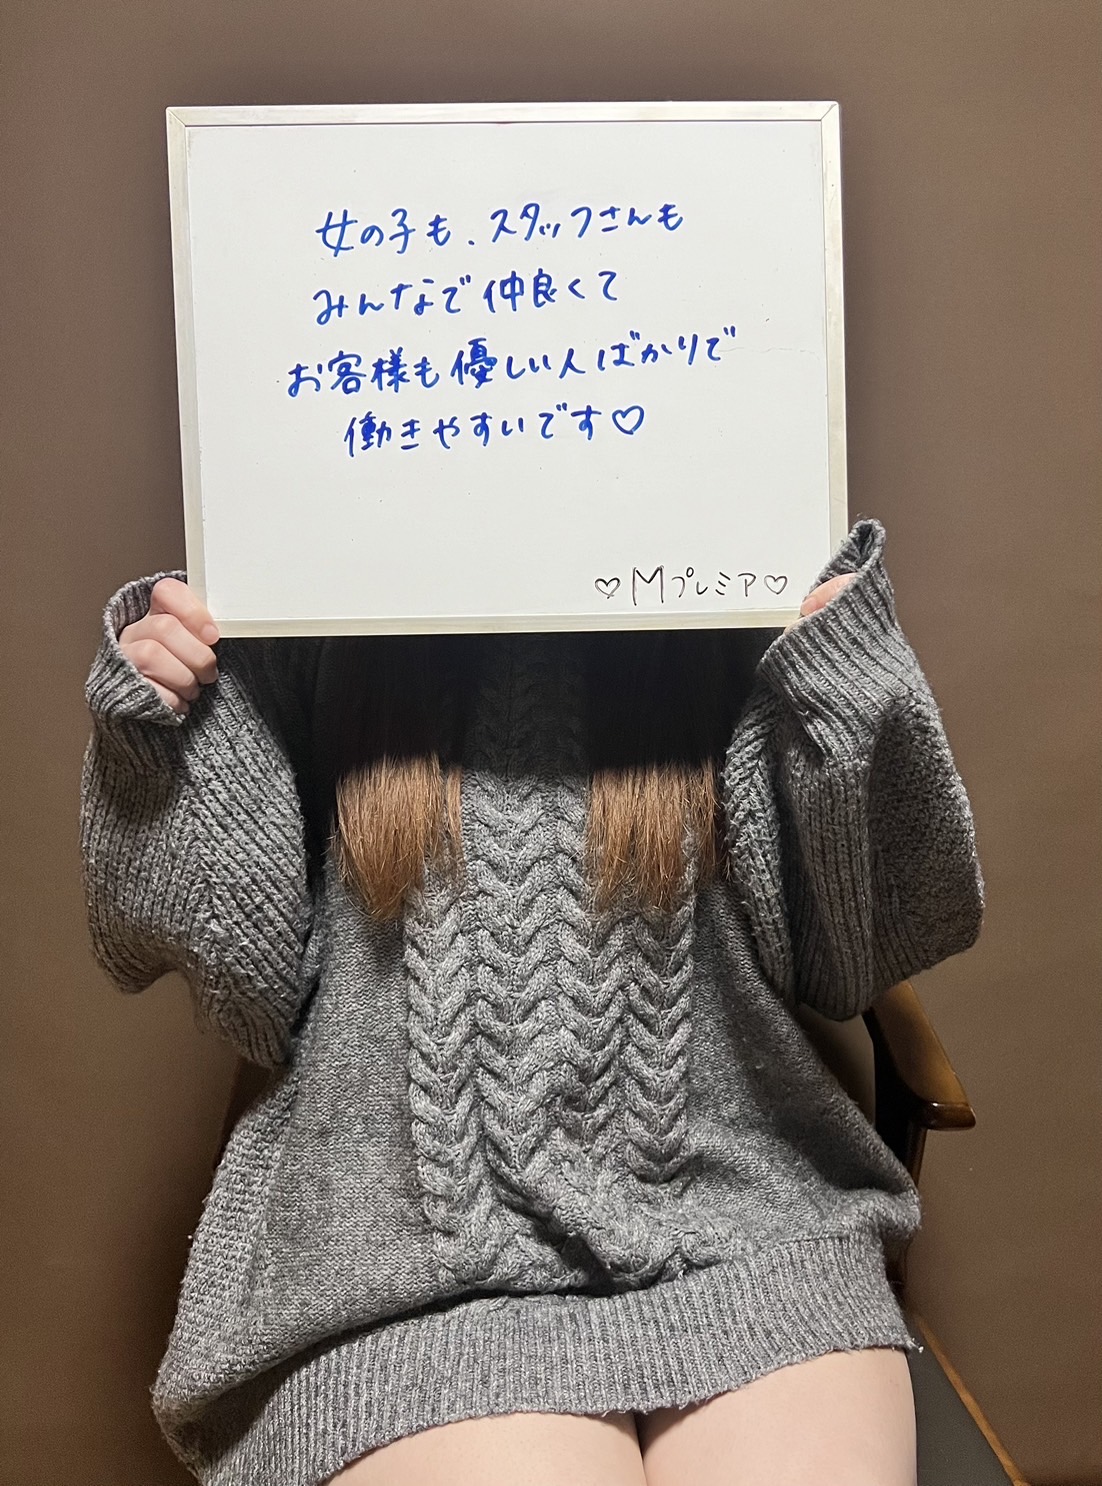 女の子も、スタッフさんも
みんなで仲良くて
お客様も優しい人ばかりで
働きやすいです♡
♡Mプレミア♡